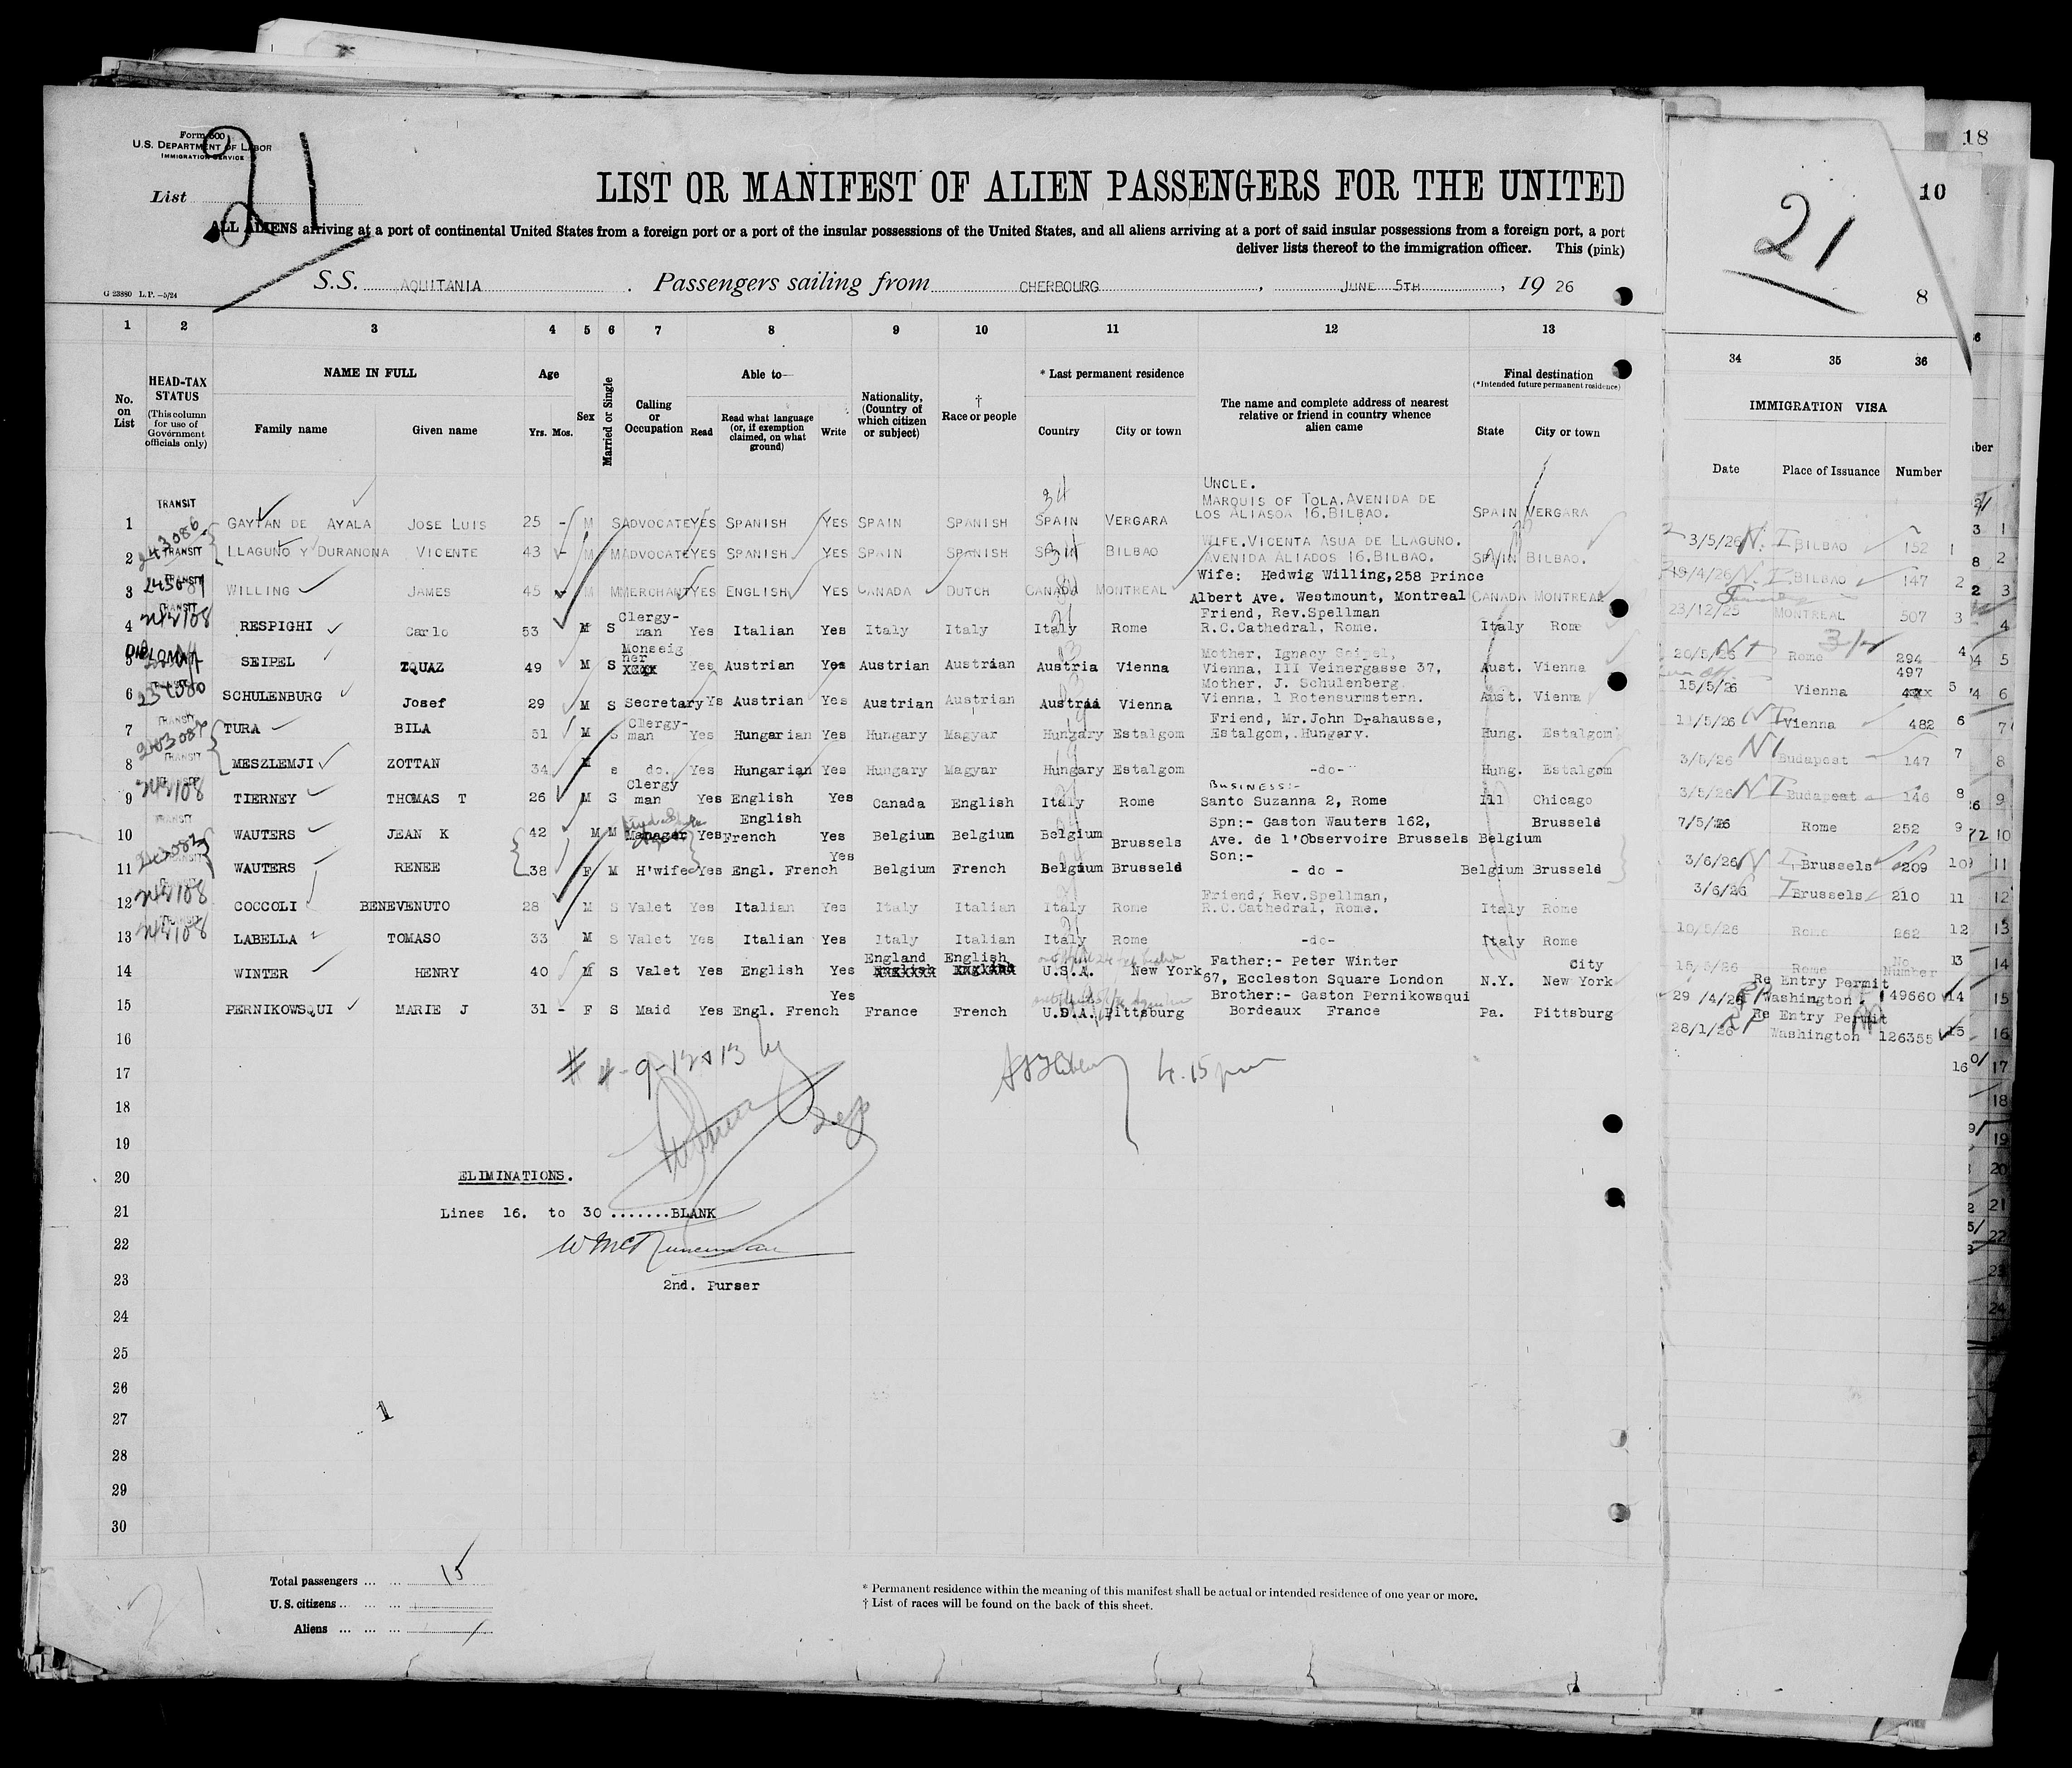 Form 500
U.S. DEPARTMENT OF LABOR
IMMIGRATION SERVICE
List 21
LIST OR MANIFEST OF ALIEN PASSENGERS FOR THE UNITED
ALL ALIENS arriving at a port of continental United States from a foreign port or a port of the insular possessions of the United States, and all aliens arriving at a port of said insular possessions from a foreign port, a port
deliver lists thereof to the immigration officer. This (pink)
G 23880 L.P.—5/24
S.S. AQUITANIA . Passengers sailing from CHERBOURG , JUNE 5TH , 19 26
18
10
21
8
1 2 3 4 5 6 7 8 9 10 11 12 13
34 35 36
No. on List
HEAD-TAX STATUS
(This column for use of Government officials only)
NAME IN FULL
Family name
Given name
Age
Yrs. Mos.
Sex
Married or Single
Calling or Occupation
Able to—
Read
Read what language (or, if exemption claimed, on what ground)
Write
Nationality, (Country of which citizen or subject)
† Race or people
* Last permanent residence
Country
City or town
The name and complete address of nearest relative or friend in country whence alien came
Final destination
(*Intended future permanent residence)
State
City or town
IMMIGRATION VISA
Date
Place of Issuance
Number
UNCLE.
MARQUIS OF TOLA.AVENIDA DE
1 TRANSIT GAYTAN DE AYALA JOSE LUIS 25 - M S ADVOCATE YES SPANISH YES SPAIN SPANISH SPAIN VERGARA LOS ALIASOA 16.BILBAO. SPAIN VERGARA
243086
WIFE.VICENTA ASUA DE LLAGUNO.
2 TRANSIT LLAGUNO Y DURANONA VICENTE 43 - M M ADVOCATE YES SPANISH YES SPAIN SPANISH SPAIN BILBAO AVENIDA ALIADOS 16.BILBAO. SPAIN BILBAO.
Wife: Hedwig Willing,258 Prince
3 TRANSIT WILLING JAMES 45 - M M MERCHANT YES ENGLISH YES CANADA DUTCH CANADA MONTREAL Albert Ave. Westmount, Montreal CANADA MONTREAL
Clergy- Friend, Rev.Spellman
4 TRANSIT RESPIGHI Carlo 53 M S man Yes Italian Yes Italy Italy Italy Rome R.C.Cathedral, Rome. Italy Rome
Monseig Mother, Ignacy Seipel,
5 DIPLOMAT SEIPEL ZQUAZ 49 M S ner Yes Austrian Yes Austrian Austrian Austria Vienna Vienna, III Veinergasse 37, Aust. Vienna
Mother, J. Schulenberg
6 SCHULENBURG Josef 29 M S Secretary Ys Austrian Yes Austrian Austrian Austria Vienna Vienna, 1 Rotensurmstern. Aust. Vienna
Clergy- Friend, Mr.John Drahausse,
7 TRANSIT TURA BILA 31 M S man Yes Hungarian Yes Hungary Magyar Hungary Estalgom Estalgom, Hungary. Hung. Estalgom
8 TRANSIT MESZLEMJI ZOTTAN 34 M s do. Yes Hungarian Yes Hungary Magyar Hungary Estalgom -do- Hung. Estalgom
Clergy BUSINESS:-
9 TRANSIT TIERNEY THOMAS T 26 M S man Yes English Yes Canada English Italy Rome Santo Suzanna 2, Rome Ill Chicago
English Spn:- Gaston Wauters 162, Brusseld
10 TRANSIT WAUTERS JEAN K 42 M M Manager Yes French Yes Belgium Belgium Belgium Brussels Ave. de l'Observoire Brussels Belgium
Yes Son:-
11 WAUTERS RENEE 38 F M H'wife Yes Engl. French Belgium French Belgium Brusseld - do - Belgium Brusseld
Friend, Rev.Spellman,
12 COCCOLI BENEVENUTO 28 M S Valet Yes Italian Yes Italy Italian Italy Rome R.C.Cathedral, Rome. Italy Rome
13 TRANSIT LABELLA TOMASO 33 M S Valet Yes Italian Yes Italy Italian Italy Rome -do- Italy Rome
England English Father:- Peter Winter City
14 WINTER HENRY 40 M S Valet Yes English Yes U.S.A. New York 67, Eccleston Square London N.Y. New York
Yes Brother:- Gaston Pernikowsqui
15 PERNIKOWSQUI MARIE J 31 - F S Maid Yes Engl. French France French U.S.A. Pittsburg Bordeaux France Pa. Pittsburg
3/5/26 N.I BILBAO 152 1
19/4/26 N.I. BILBAO 147 2
23/12/25 MONTREAL 507 3
20/5/26 Rome 294 4
497
15/5/26 Vienna 5
11/5/26 NI Vienna 482 6
3/5/26 NI Budapest 147 7
3/5/26 NI Budapest 146 8
7/5/26 Rome 252 9
3/6/26 N I Brussels 209 10
3/6/26 I Brussels 210 11
10/5/26 Rome 262 12
15/5/26 Rome No Number 13
Re Entry Permit
29 /4/26 RP Washington 149660 14
Re Entry Permit
28/1/26 RP Washington 126355 15
16
16
17
18
19
20
21
22
23
24
25
26
27
28
29
30
# 4-9-12&13
4.15 pm
ELIMINATIONS.
Lines 16. to 30 .......BLANK
2nd. Purser
Total passengers ... ... 15
U.S. citizens ... ... ...
Aliens ... ... ...
* Permanent residence within the meaning of this manifest shall be actual or intended residence of one year or more.
† List of races will be found on the back of this sheet.